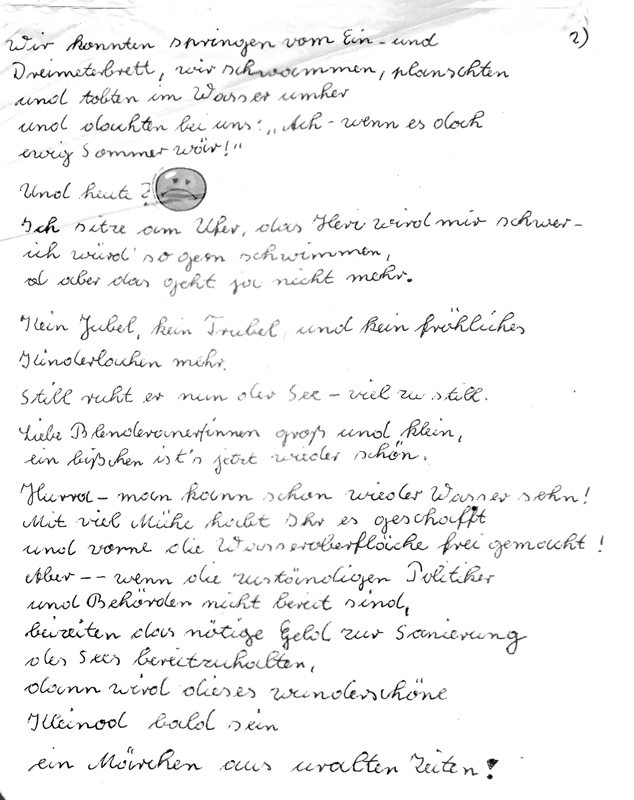 2)
Wir konnten springen vom Ein- und
Dreimeterbrett, wir schwammen, planschten
und tobten im Wasser umher
und dachten bei uns: „Ach - wenn es doch
ewig Sommer wär!"
Und heute?
Ich sitze am Ufer, das Herz wird mir schwer -
ich würd' so gern schwimmen,
aber das geht ja nicht mehr.
Kein Jubel, kein Trubel und kein fröhliches
Kinderlachen mehr.
Still ruht er nun der See - viel zu still.
Liebe Blenderaner/innen groß und klein,
ein bißchen ist's jetzt wieder schön.
Hurra - man kann schon wieder Wasser sehn!
Mit viel Mühe habt Ihr es geschafft
und vorne die Wasseroberfläche frei gemacht!
Aber -- wenn die zuständigen Politiker
und Behörden nicht bereit sind,
beizeiten das nötige Geld zur Sanierung
des Sees bereitzuhalten,
dann wird dieses wunderschöne
Kleinod bald sein
ein Märchen aus uralten Zeiten!